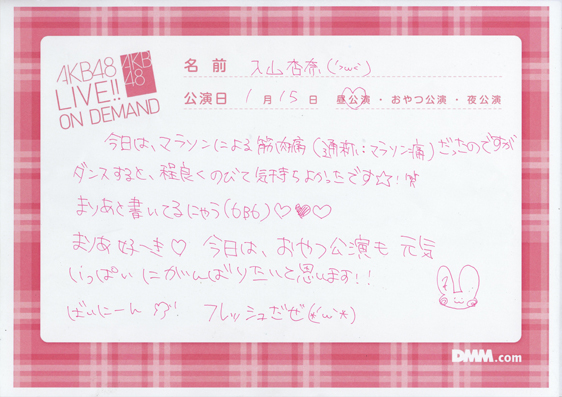 AKB48
LIVE!!
ON DEMAND
AKB
48
名前 入山杏奈(´›ω‹`)
公演日 1月15日 昼公演・おやつ公演・夜公演
今日は、マラソンによる筋肉痛(通称:マラソン痛)だったのですが
ダンスすると、程良くのびて気持ちよかったです☆!!
まりあと書いてるにゃう(6B6)♡♥♡
まりあ好〜き♡ 今日は、おやつ公演も 元気
いっぱいにがんばりたいと思います!!
ばいにーん !! フレッシュだぜ(*´ω`*)
DMM.com